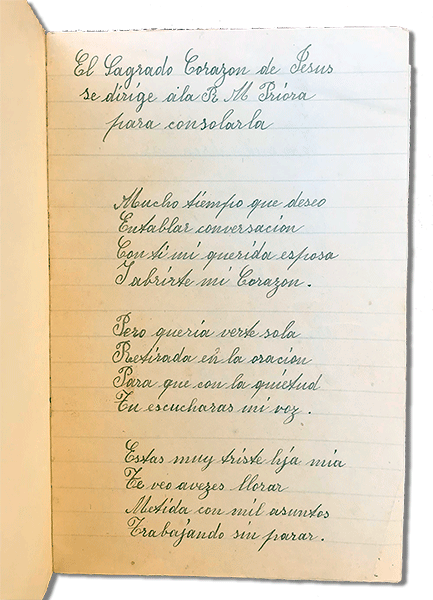 El Sagrado Corazon de Jesus
se dirige a la R M Priora
para consolarla
Mucho tiempo que deseo
Entablar conversación
Con ti mi querida esposa
I abrirte mi Corazon.
Pero queria verte sola
Retirada en la oración
Para que con la quietud
Tu escucharas mi voz.
Estas muy triste hja mia
Te veo avezes llorar
Metida con mil asuntos
Trabajando sin parar.